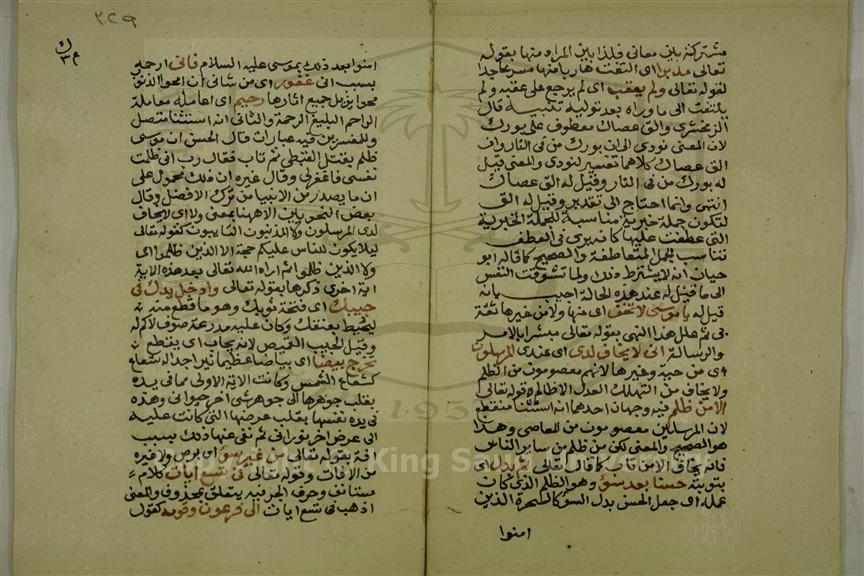 مشتركة بين معاني فلذا بين المراد منها بقوله
تعالى مدبرا اى التفت هاربا منها مسرعا جدا
لقوله تعالى ولم يعقب اى لم يرجع على عقبه ولم
يلتفت الى ما وراه بعد توليه تنبيه قال
الزمخشرى والق عصاك معطوف على بورك
لان المعنى نودى الى ان بورك من فى النار وان
الق عصاك كلاهما تفسير لنودى والمعنى قيل
له بورك من فى النار وقيل له الق عصاك
انتهى وانما احتاج الى تقدير وقيل له الق
لتكون جملة خبرية مناسبة للجملة الخبرية
التى عطفت عليها كانه يرى فى العطف
تناسب الجمل المتعاطفة والصحيح كما قاله ابو
حيان انه لا يشترط ذلك ولما تشوقت النفس
الى ما قيل له عند هذه الحالة اجيب بانه
قيل له يا موسى لا تخف اى منها ولا من غيرها ثقة
بى ثم علل هذا النهى بقوله تعالى مبشرا بالامن
والرسالة انى لا يخاف لدى اى عندى المرسلون
اى من حية وغيرها لانهم معصومون من الظلم
ولا يخاف من الملك العدل الا ظالم وقوله تعالى
الا من ظلم فيه وجهان احدهما انه استثنا منقطع
لان المرسلين معصومون من المعاصى وهذا
هو الصحيح والمعنى لكن من ظلم من ساير الناس
فانه يخاف الا من تاب كما قال تعالى ثم بدل اى
بتوبته حسنا بعد سوء وهو الظلم الذى كان
عمله اى جعل الحسن بدل السوء كالسحرة الذين
امنوا
٣٢٩
امنوا بعد ذلك بموسى عليه السلام فانى ارحمه
بسبب انى غفور اى من شانى ان امحو الذنوب
محوا يزيل جميع اثارها رحيم اى اعامله معاملة
الراحم البليغ الرحمة والثانى انه استثنا متصل
وللمفسرين فيه عبارات قال الحسن ان موسى
ظلم بقتل القبطى ثم تاب فقال رب انى ظلمت
نفسى فاغفر لى وقال غيره ان ذلك محمول على
ان ما يصدر من الانبيا من ترك الافضل وقال
بعض النحويين الا ههنا بمعنى ولا اى لا يخاف
لدى المرسلون ولا المذنبون التايبون كقوله تعالى
ليلا يكون للناس عليكم حجة الا الذين ظلموا اى
ولا الذين ظلموا ثم اراه الله تعالى بعد هذه الاية
اية اخرى ذكرها بقوله تعالى وادخل يدك فى
جيبك اى فتحة ثوبك وهو ما قطع منه
ليحيط بعنقك وكان عليه مدرعة صوف لا كم له
وقيل الجيب القميص لانه يجاب اى يقطع
تخرج بيضا اى بياضا عظيما نيرا جدا له شعاع
كشعاع الشمس وكانت الاية الاولى مما فى يده
بقلب جوهرها الى جوهر شئ اخر حيوانى وهذه
فى يده نفسها بقلب عرضها التى كانت عليه
الى عرض اخر نورانى ثم نفى عنها ذلك بسبب
افة بقوله تعالى من غير سوء اى برص ولا غيره
من الافات وقوله تعالى فى تسع ايات كلام
مستانف وحرف الجر فيه يتعلق بمحذوف والمعنى
اذهب فى تسع ايات الى فرعون وقومه كقول